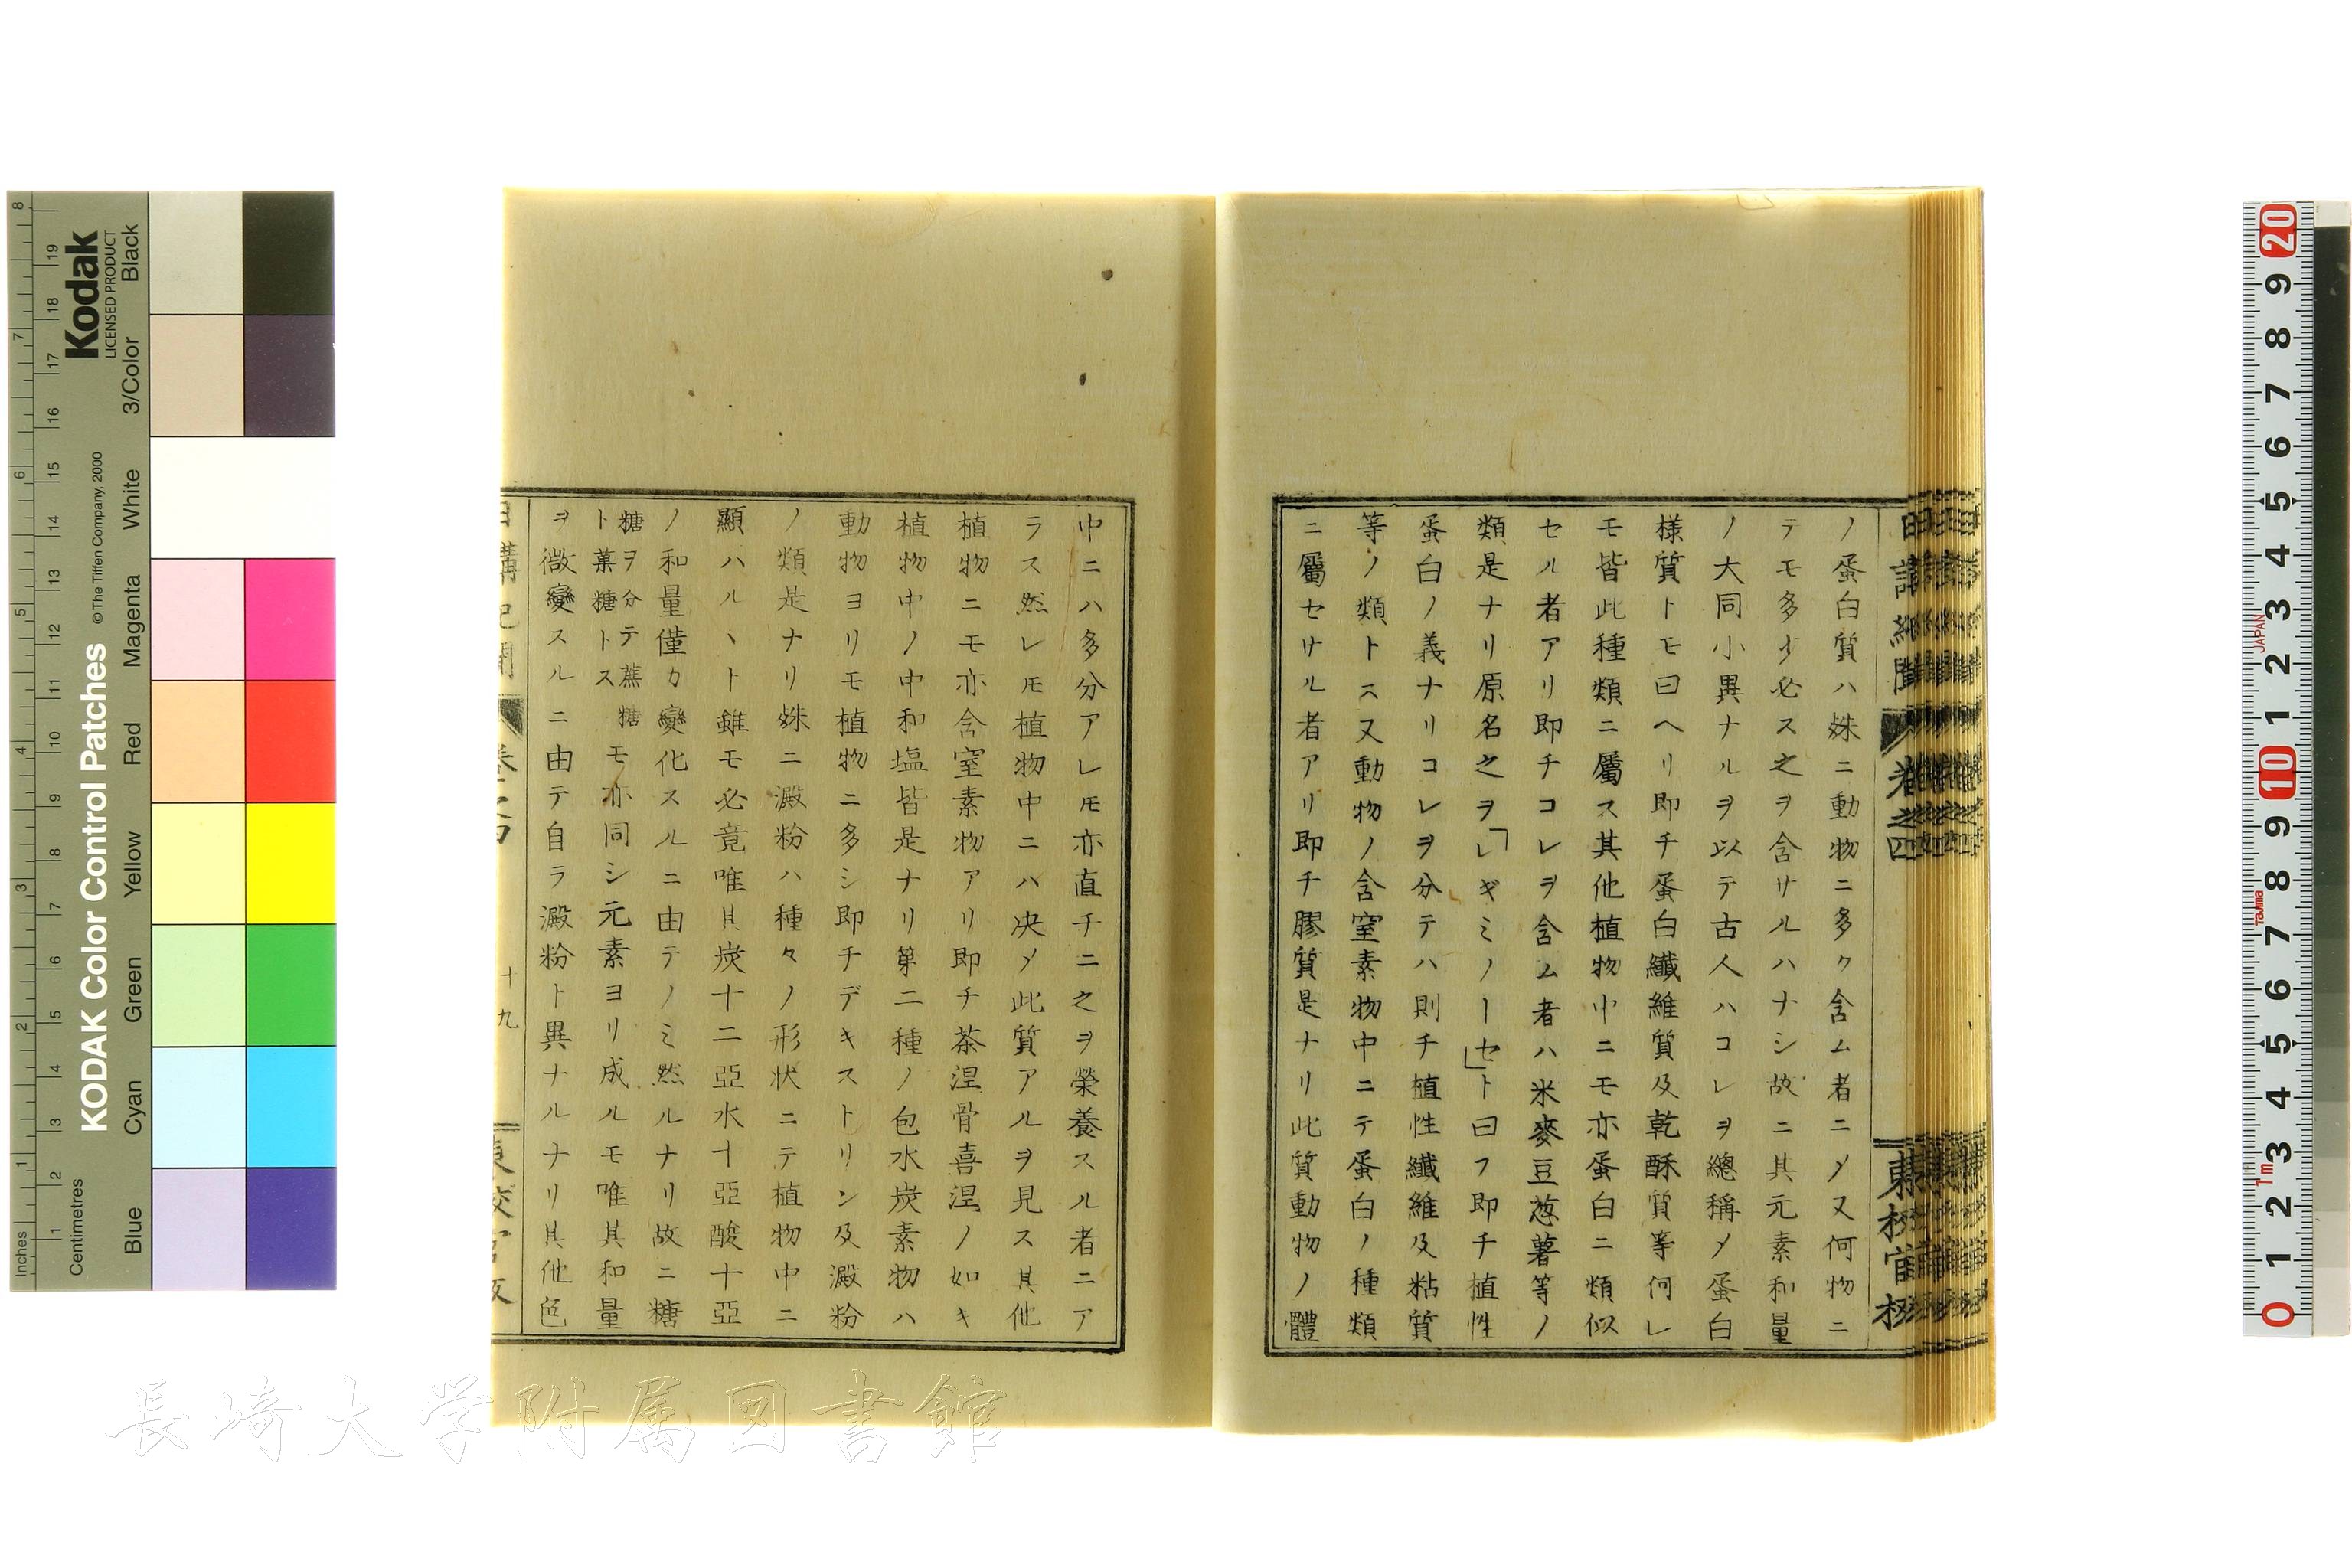 ノ蛋白質ハ姝ニ動物ニ多ク含ム者ニ〆又何物ニ
テモ多少必ス之ヲ含サルハナシ故ニ其元素和量
ノ大同小異ナルヲ以テ古人ハコレヲ總稱〆蛋白
様質トモ曰ヘリ即チ蛋白纎維質及乾酥質等何レ
モ皆此種類ニ屬ス其他植物中ニモ亦蛋白ニ類似
セル者アリ即チコレヲ含ム者ハ米麥豆菽薯等ノ
類是ナリ原名之ヲ「レギミノーセ」ト曰フ即チ植性
蛋白ノ義ナリコレヲ分テハ則チ植性纎維及粘質
等ノ類トス又動物ノ含窒素物中ニテ蛋白ノ種類
ニ屬セサル者アリ即チ膠質是ナリ此質動物ノ體
中ニハ多分アレ𪜈亦直チニ之ヲ榮養スル者ニア
ラス然レ𪜈植物中ニハ决〆此質アルヲ見ス其他
植物ニモ亦含窒素物アリ即チ茶涅骨喜涅ノ如キ
植物中ノ中和塩皆是ナリ第二種ノ包水炭素物ハ
動物ヨリモ植物ニ多シ即チデキストリン及澱粉
ノ類是ナリ姝ニ澱粉ハ種々ノ形状ニテ植物中ニ
顯ハルヽト雖モ必竟唯其炭十二亞水十亞酸十亞
ノ和量僅カ變化スルニ由テノミ然ルナリ故ニ糖
糖ヲ分テ蔗糖
ト菓糖トス
モ亦同シ元素ヨリ成ルモ唯其和量
ヲ微變スルニ由テ自ラ澱粉ト異ナルナリ其他色
日講紀聞 卷之四
東校官板
十九
長崎大学附属図書館
Kodak
LICENSED PRODUCT
KODAK Color Control Patches
© The Tiffen Company, 2000
Black
3/Color
White
Magenta
Red
Yellow
Green
Cyan
Blue
Inches
1
2
3
4
5
6
7
8
Centimetres
1
2
3
4
5
6
7
8
9
10
11
12
13
14
15
16
17
18
19
20
9
8
7
6
5
4
3
2
1
10
9
8
7
6
5
4
3
2
1
0
JAPAN
Tajima
1m